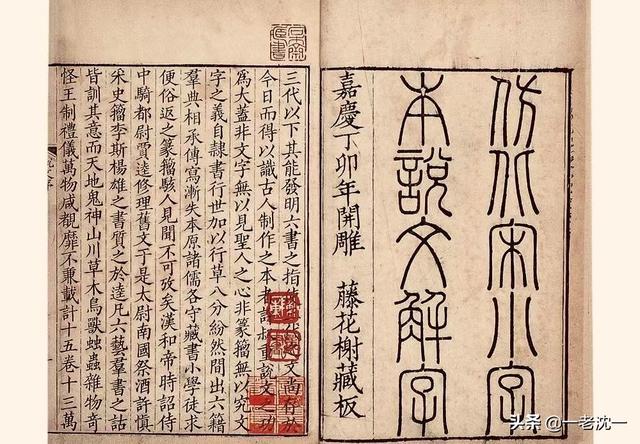 仿北宋小字
本說文解字
嘉慶丁卯年開雕 藤花榭藏板
三代以下其能發明六書之指文尚存於
今日而得以識古人制作之本者許叔重說文之功
爲大蓋非文字無以見聖人之心非篆籀無以究文
字之義自隸書行世加以行草八分紛然間出六籍
羣典相承傳寫漸失本原諸儒各守藏書小學徒求
便俗返之篆籀駭人見聞不可攷矣漢和帝時詔侍
中騎都尉賈逵修理舊文于是太尉南國祭酒許慎
采史籀李斯楊雄之書質之於逵凡六藝羣書之詁
皆訓其意而天地鬼神山川草木鳥獸䖵蟲雜物奇
怪王制禮儀萬物咸覩靡不兼載計十五卷十三萬
头条 @一老沈一